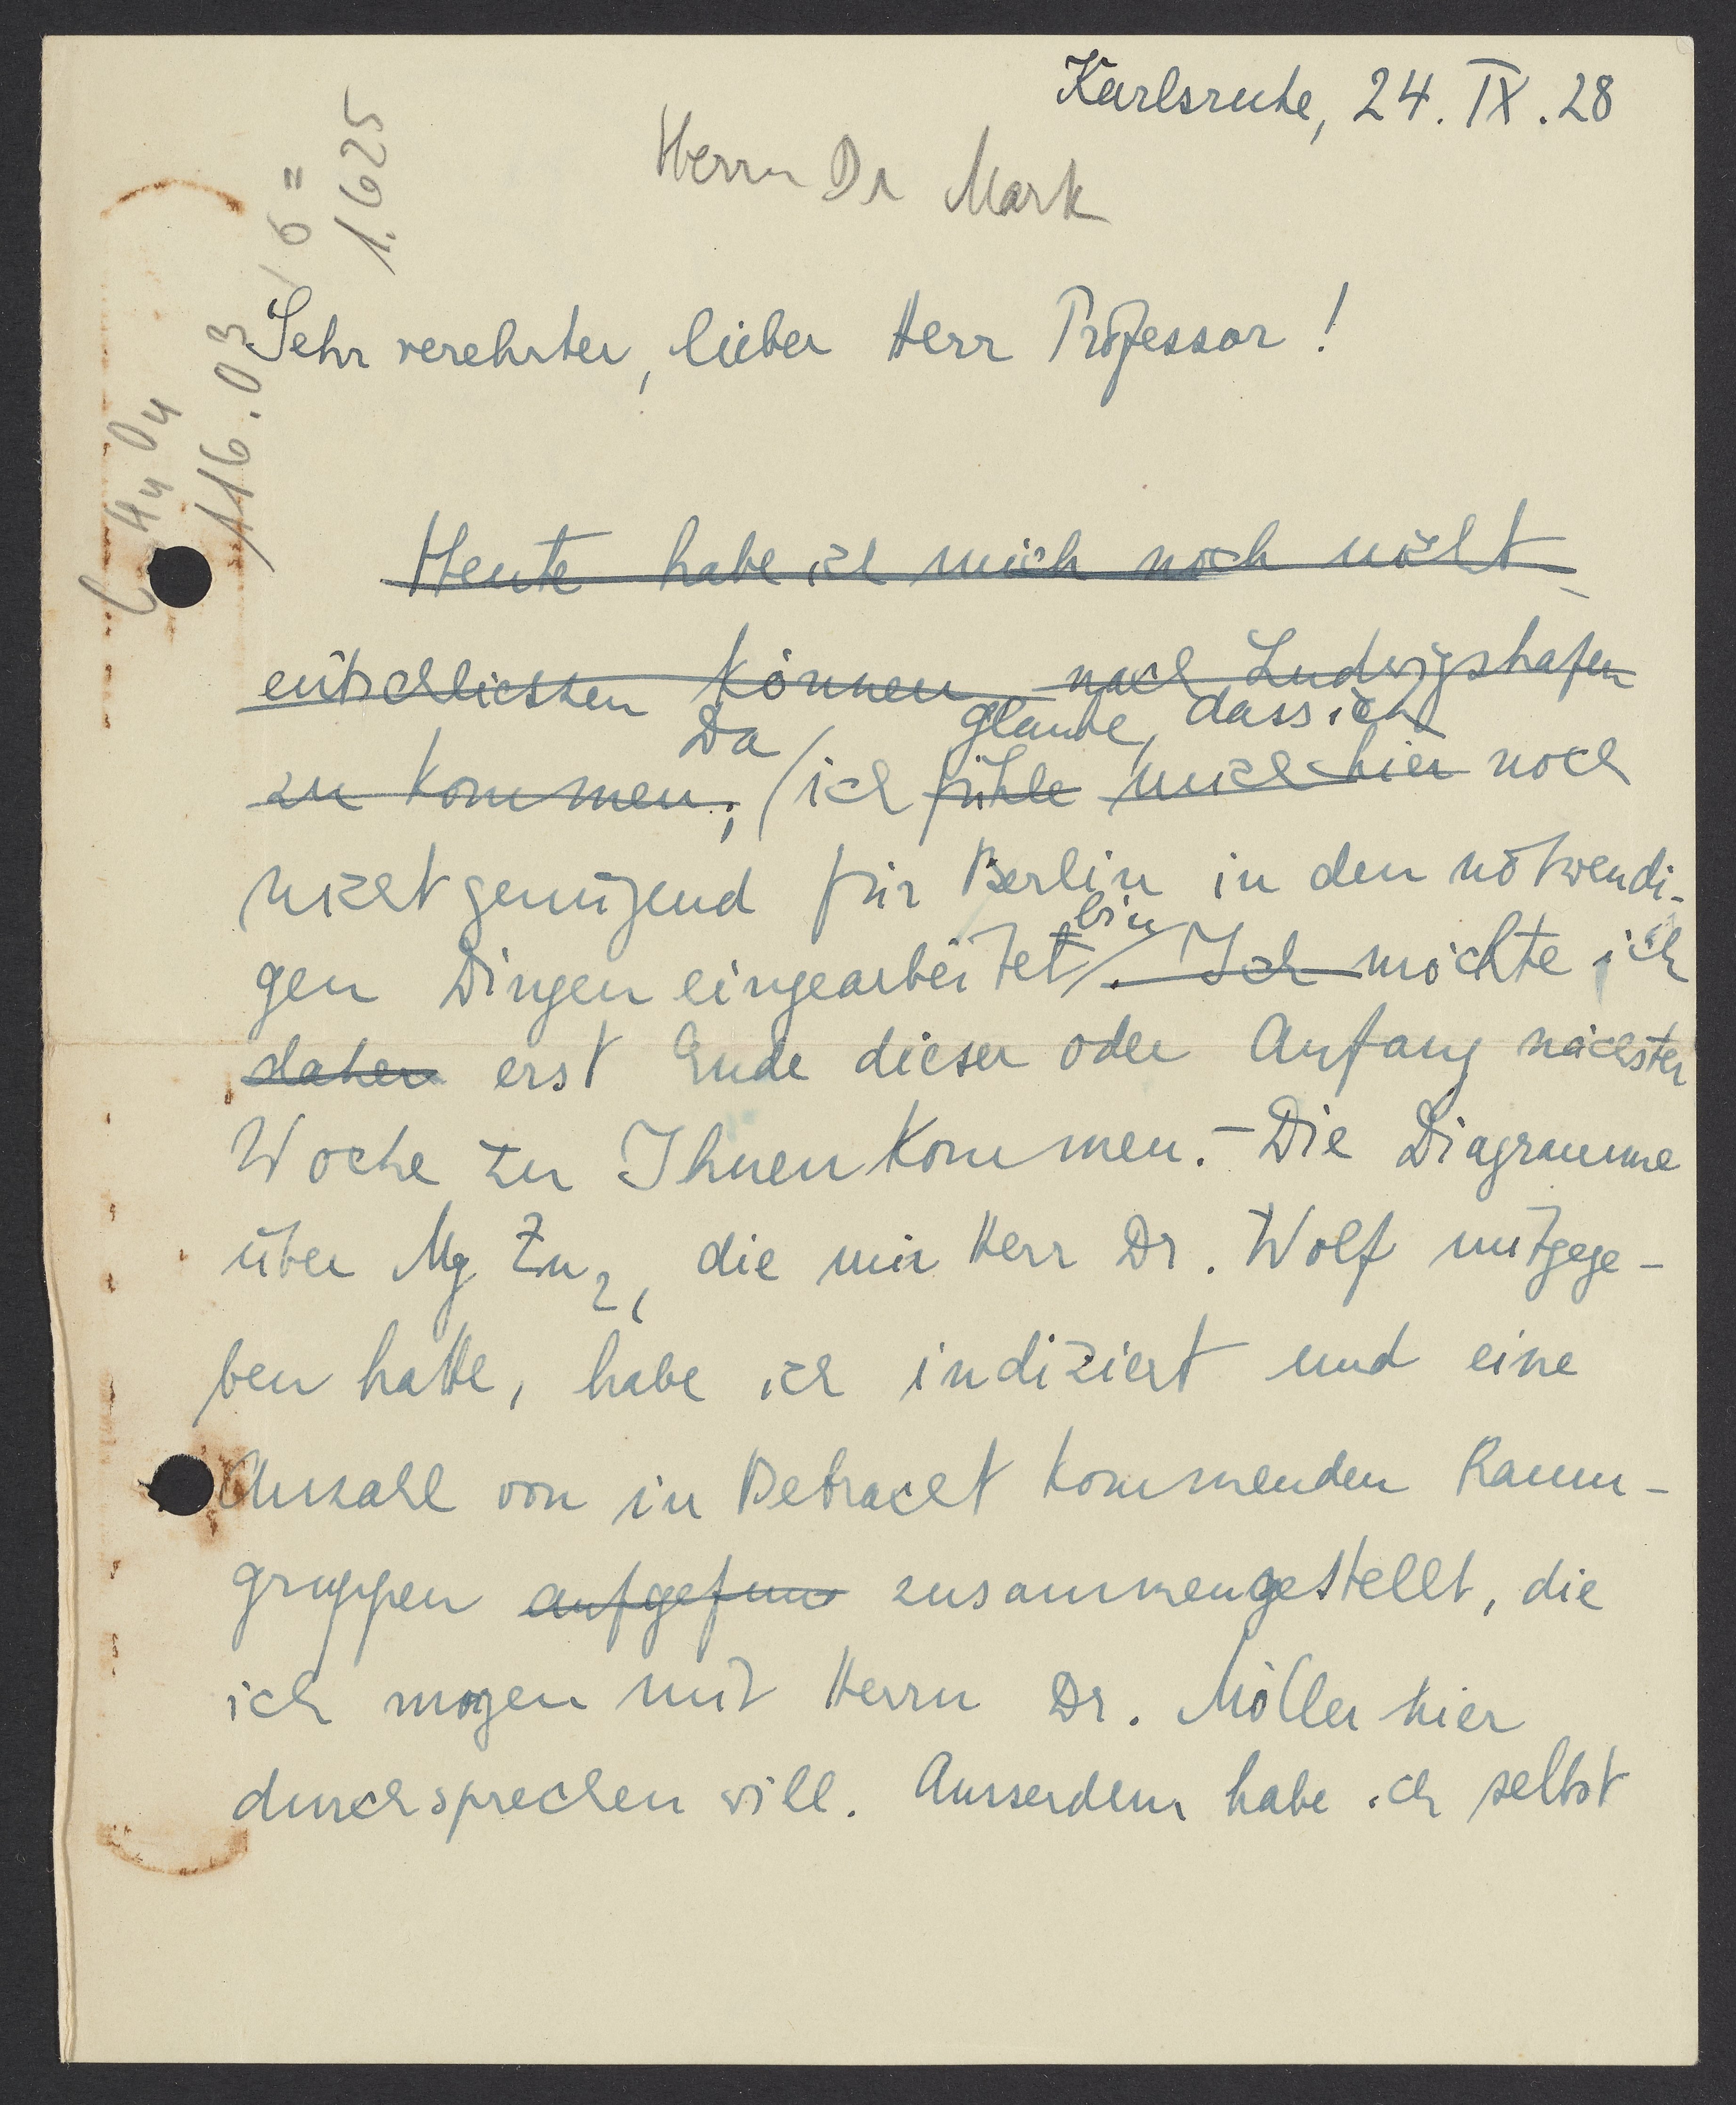 Karlsruhe, 24. IX. 28
Herrn Dr Mark
Sehr verehrter, lieber Herr Professor!
Heute habe ich mich noch nicht
entschliessen können, nach Ludwigshafen
zu kommen; Da / ich fühle glaube, dass ich mich hier noch
nicht genügend für Berlin in den notwendi-
gen Dingen eingearbeitet bin /. Ich möchte ich
daher erst Ende dieser oder Anfang nächster
Woche zu Ihnen kommen. – Die Diagramme
über Mg Zn2, die mir Herr Dr. Wolf mitgege-
ben hatte, habe ich indiziert und eine
Anzahl von in Betracht kommenden Raum-
gruppen aufgefun zusammengestellt, die
ich morgen mit Herrn Dr. Möller hier
durchsprechen will. Ausserdem habe ich selbst
C4H4O4
116.03
6 =
1.625